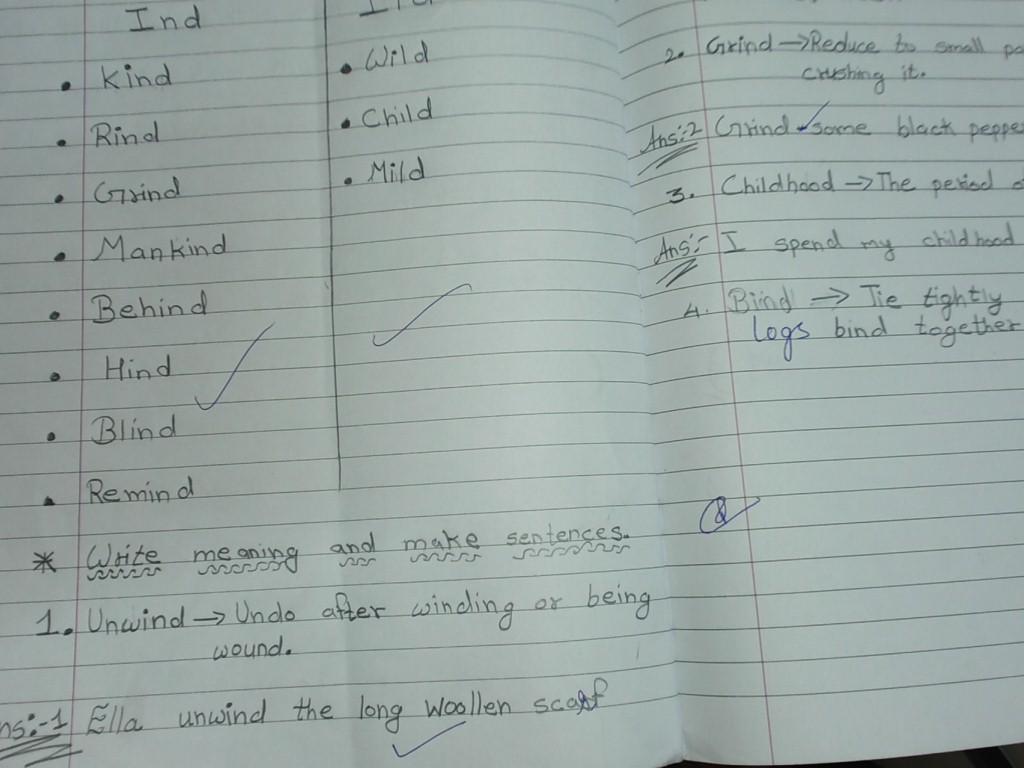 Ind
• Kind
• Rind
• Grind
• Mankind
• Behind
• Hind
• Blind
• Remind
• Wild
• Child
• Mild
* Write meaning and make sentences.
1. Unwind → Undo after winding or being
wound.
Ans:-1 Ella unwind the long woollen scarf
2. Grind → Reduce to small
crushing it.
Ans:-2 Grind some black
3. Childhood → The period
Ans:- I spend my childhood
4. Bind → Tie tightly
logs bind together